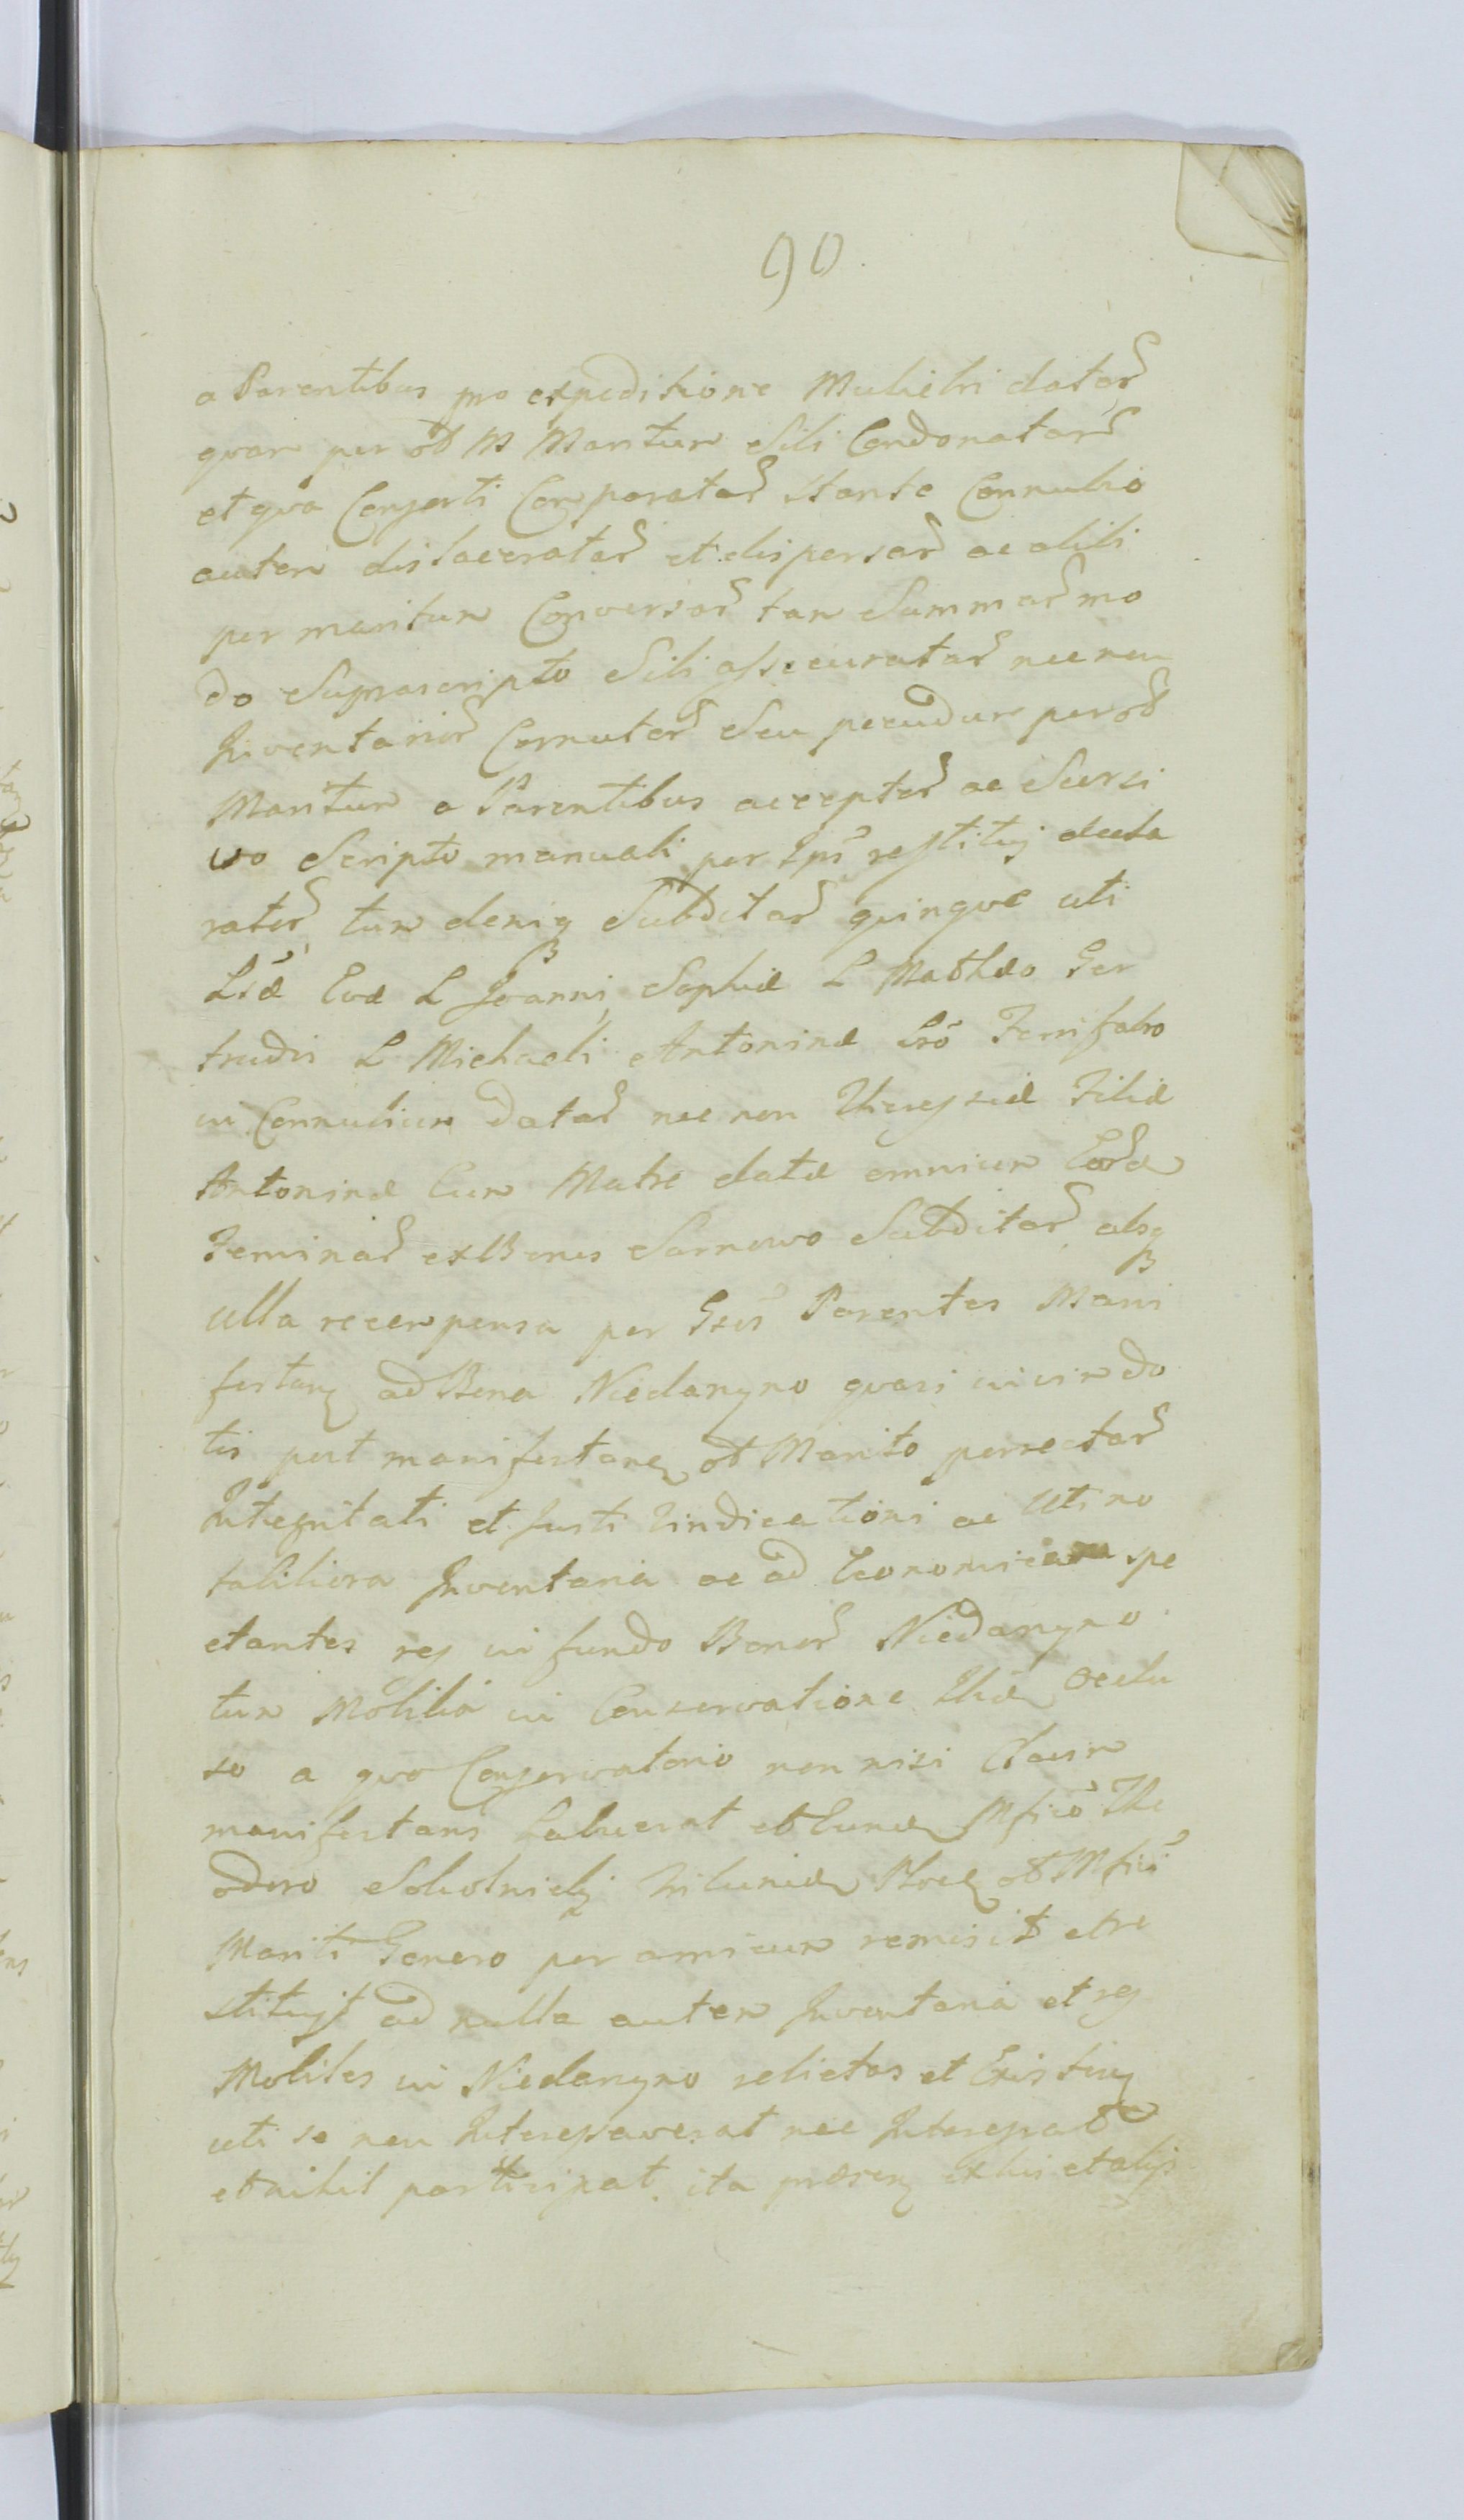 90.
a Parentibus pro expeditione Muliehri datar
quar per ol M Maritum Sibi Condonatar
et qva Consorti Comparatar stante Connubio
autem dislaceratar et dispersar ac alibi
per maritum Conversar tam Summar mo
do Suprascripto Sibi assecuratar nec non
Inventarior Cornutor Seu pecudum per ol
Maritum a Parentibus acceptor ac Scursi
vo Scripto manuali per Ips restituj decla
rator, tum deniq Subditar quinque uti
Lsæ Evæ L Joanni, Sophiæ L Mathæo Ger
trudis L Michaeli Antoninæ Lso Ferrifabro
in Connubium datar nec non Theresiæ Filiæ
Antoninæ Cum Matre datæ omnium Eord
Feminar ex Bonis Sarnowo Subditar absq
ulla recompensa per Gsos Parentes Mani
festang ad Bona Niedanyno quasi in vim do
tis put manifestang ol Marito persectar
Integritati et justi Vindicationi ac Uti no
tabiliora Inventaria ac ad Œconomiam spe
ctantes res in fundo Bonor Niedanyno
tum Mobilia in Conservatione Ibid Occlu
so a quo Conservatorio non nisi Clavim
manifestans habuerat et eund Mfico The
odoro Sokolnicki Tribunid Ploc ol Mfici
Mariti Genero per amicum remisit et re
stituit ad nulla autem Inventaria et res
Mobiles in Niedanyno relictas et Existen
uti se non Interessaverat nec Interessat
et nihil participat. ita præsen ex his et alijs